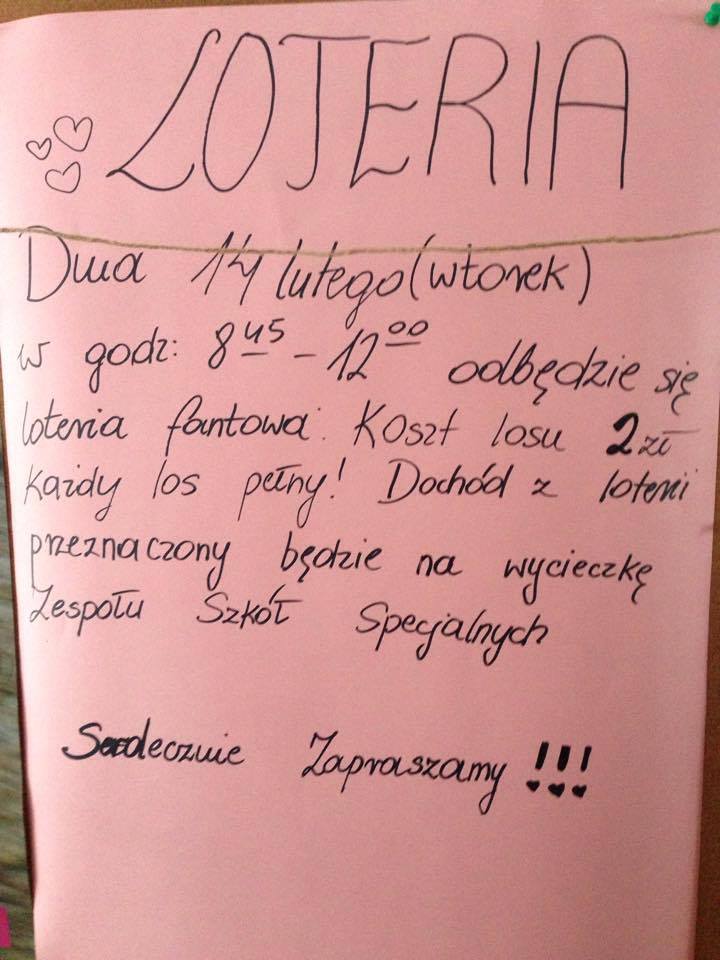 LOTERIA
Dnia 14 lutego (wtorek)
w godz: 8 45 - 12 00 odbędzie się
loteria fantowa. Koszt losu 2 zł
każdy los pełny! Dochód z loterii
przeznaczony będzie na wycieczkę
Zespołu Szkół Specjalnych
Serdecznie Zapraszamy !!!